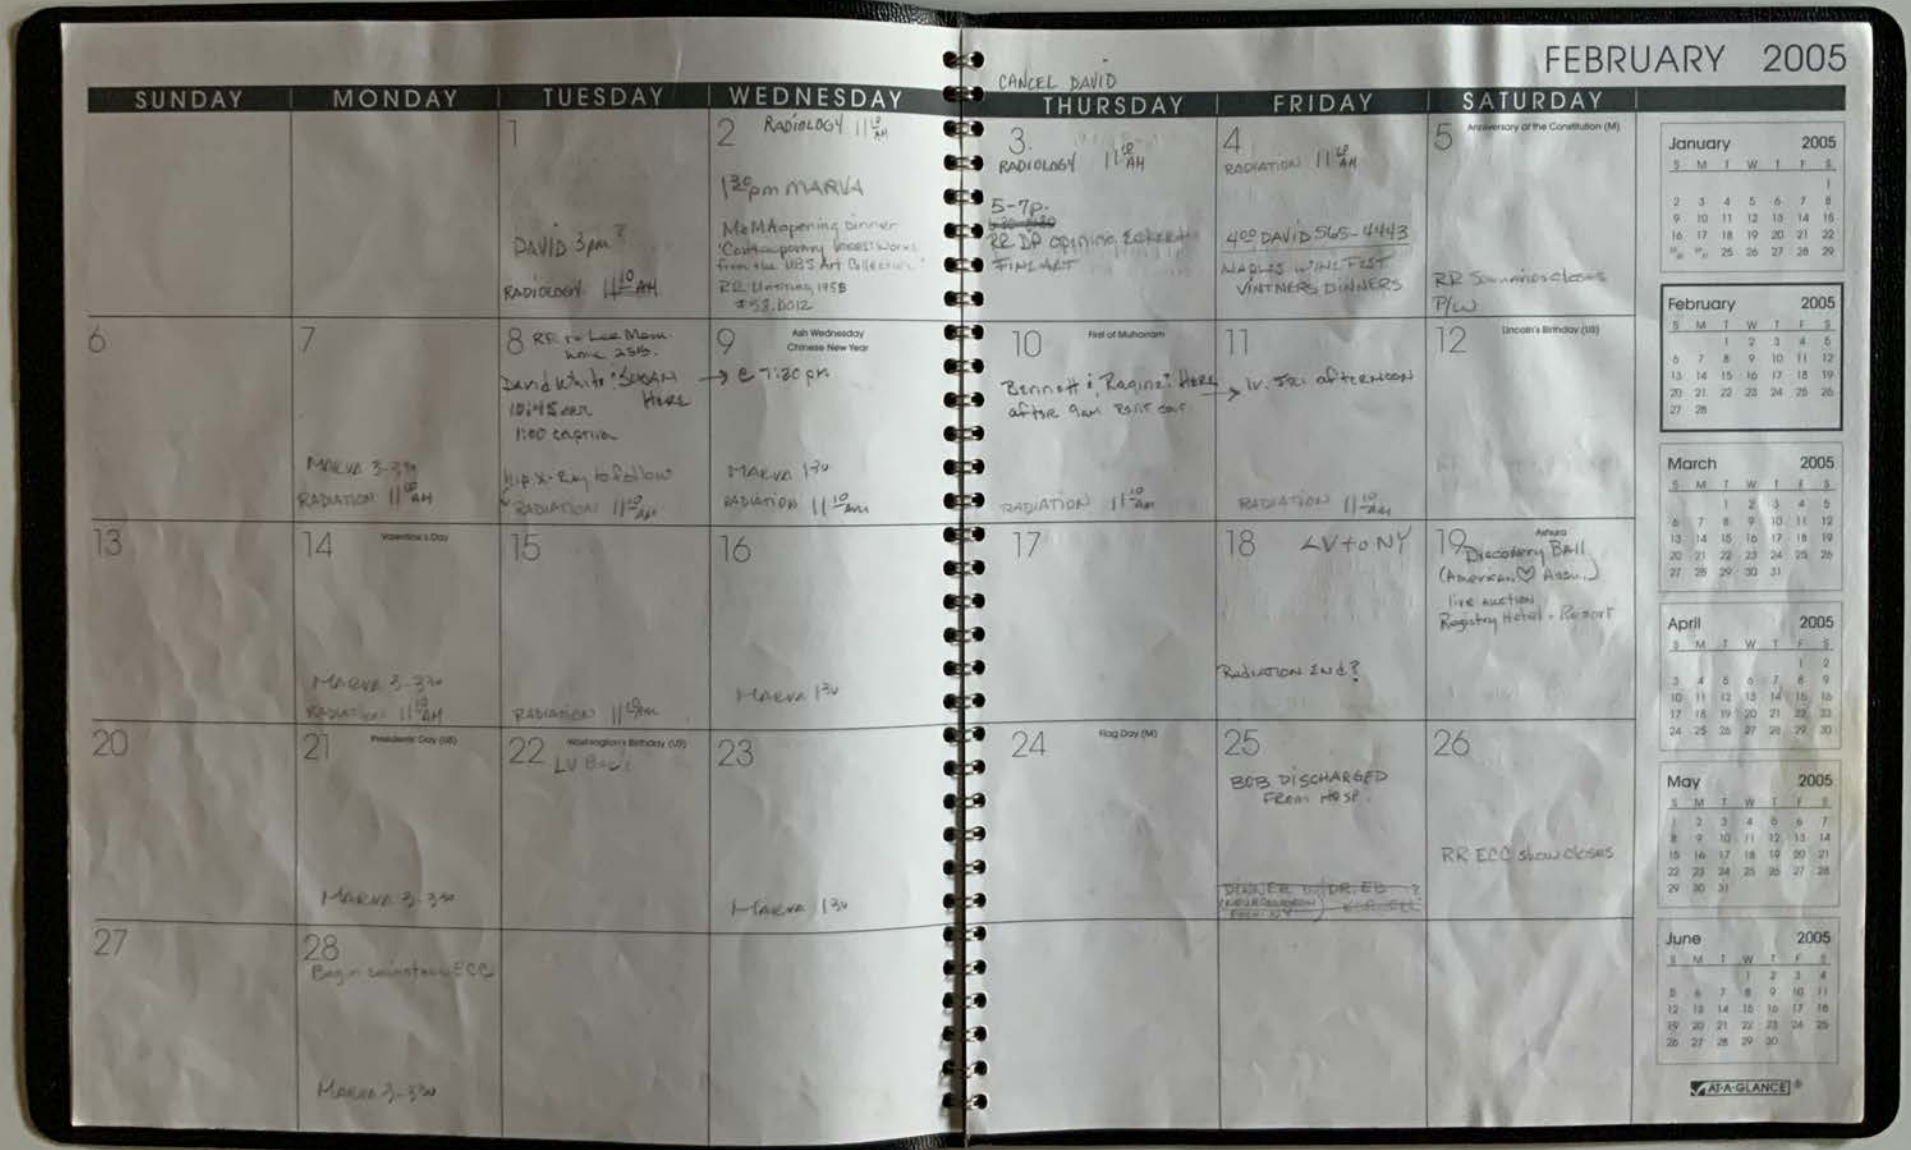 FEBRUARY 2005
CANCEL DAVID
SUNDAY MONDAY TUESDAY WEDNESDAY THURSDAY FRIDAY SATURDAY
1
DAVID 3pm?
RADIOLOGY 11 10 AM
2 RADIOLOGY 11 10 AM
1 30 pm MARVA
MoMA opening dinner
'Contemporary
from the UBS Art Collection'
RR Untitled, 1958
#58.D012
3.
RADIOLOGY 11 10 AM
5-7p.
RR DP opening Eckert
FINE ART
4
RADIATION 11 10 AM
4 00 DAVID 565-4443
NAPLES WINE FEST
VINTNERS DINNERS
5 Anniversary of the Constitution (M)
RR closes
P/W
6
7
MARVA 3-3 30
RADIATION 11 10 AM
8 RR to Lee Mem.
David White & SUSAN
HERE
10:45 am
1:00 captiva
Hip X-Ray to follow
RADIATION 11 10 AM
9 Ash Wednesday
Chinese New Year
→ @ 7:30 pm
MARVA 1 30
RADIATION 11 10 AM
10 First of Muharram
Bennett & Ragine: HERE
after 9am
RADIATION 11 10 AM
11
→ lv. afternoon
RADIATION 11 10 AM
12 Lincoln's Birthday (US)
13
14 Valentine's Day
MARVA 3-3 30
RADIATION 11 10 AM
15
RADIATION 11 10 AM
16
MARVA 1 30
17
18 LV to NY
Radiation End?
19 Ashura
Discovery Ball
(American ♡ Assn.)
live auction
Registry Hotel - Resort
20
21 Presidents' Day (US)
MARVA 3-3 30
22 Washington's Birthday (US)
LV Back
23
MARVA 1 30
24 Flag Day (M)
25
BOB DISCHARGED
FROM HOSP.
DINNER w/ DR. ED ?
26
RR ECC show closes
27
28
Begin ECC
MARVA 3-3 30
January 2005
S M T W T F S
1
2 3 4 5 6 7 8
9 10 11 12 13 14 15
16 17 18 19 20 21 22
25 26 27 28 29
February 2005
S M T W T F S
1 2 3 4 5
6 7 8 9 10 11 12
13 14 15 16 17 18 19
20 21 22 23 24 25 26
27 28
March 2005
S M T W T F S
1 2 3 4 5
6 7 8 9 10 11 12
13 14 15 16 17 18 19
20 21 22 23 24 25 26
27 28 29 30 31
April 2005
S M T W T F S
1 2
3 4 5 6 7 8 9
10 11 12 13 14 15 16
17 18 19 20 21 22 23
24 25 26 27 28 29 30
May 2005
S M T W T F S
1 2 3 4 5 6 7
8 9 10 11 12 13 14
15 16 17 18 19 20 21
22 23 24 25 26 27 28
29 30 31
June 2005
S M T W T F S
1 2 3 4
5 6 7 8 9 10 11
12 13 14 15 16 17 18
19 20 21 22 23 24 25
26 27 28 29 30
AT-A-GLANCE®